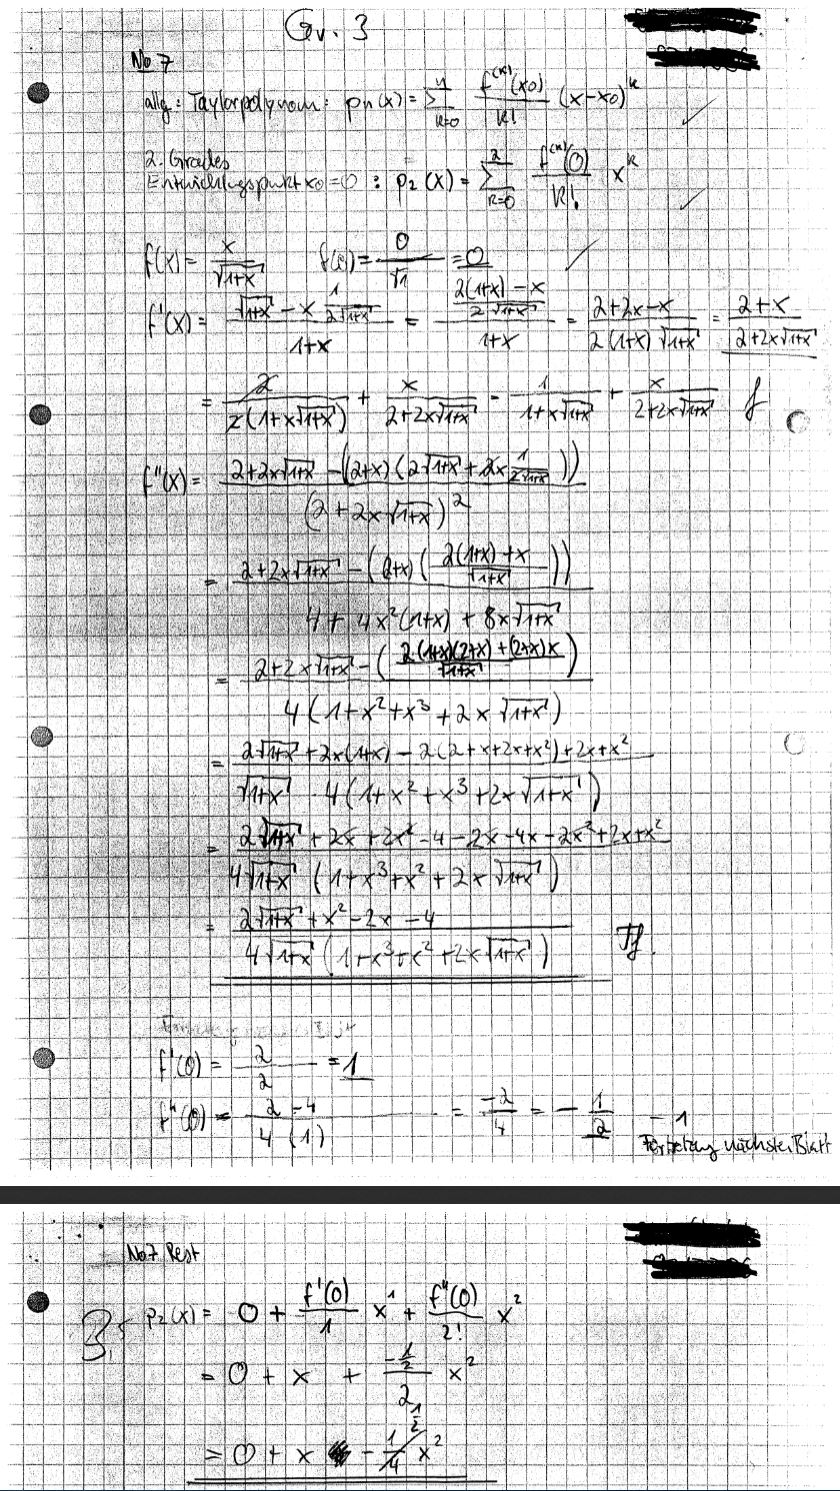 Gr. 3
No 7
allg: Taylorpolynom: pₙ(x) = Σ_{k=0}^{n} f^{(k)}(x₀)/k! (x-x₀)^k ✓
2. Grades
Entwicklungspunkt x₀=0 : p₂(x) = Σ_{k=0}^{2} f^{(k)}(0)/k! x^k ✓
f(x) = x/√(1+x) f(0) = 0/√1 = 0 ✓
f'(x) = (√(1+x) - x 1/(2√(1+x)))/(1+x) = ((2(1+x) - x)/(2√(1+x)))/(1+x) = (2+2x-x)/(2(1+x)√(1+x)) = (2+x)/(2+2x√(1+x))
= 2/(2(1+x√(1+x))) + x/(2+2x√(1+x)) = 1/(1+x√(1+x)) + x/(2+2x√(1+x)) f
f''(x) = (2+2x√(1+x) - ((2+x)(2√(1+x) + 2x 1/(2√(1+x)))))/(2+2x√(1+x))²
= (2+2x√(1+x) - ((2+x)((2(1+x)+x)/√(1+x))))/(4 + 4x²(1+x) + 8x√(1+x))
= (2+2x√(1+x) - ((2(1+x)(2+x)+(2+x)x)/√(1+x)))/(4(1+x²+x³+2x√(1+x)))
= (2√(1+x) + 2x(1+x) - 2(2+x+2x+x²)+2x+x²)/(√(1+x) 4(1+x²+x³+2x√(1+x)))
= (2√(1+x) + 2x + 2x² - 4 - 2x - 4x - 2x² + 2x + x²)/(4√(1+x) (1+x³+x²+2x√(1+x)))
= (2√(1+x) + x² - 2x - 4)/(4√(1+x) (1+x³+x²+2x√(1+x))) Tf.
f'(0) = 2/2 = 1
f''(0) = (2-4)/(4(1)) = -2/4 = -1/2 -1
Fortsetzung nächstes Blatt
No7 Rest
3. p₂(x) = 0 + f'(0)/1 x¹ + f''(0)/2! x²
= 0 + x + (-1/2)/2 x²
= 0 + x - 1/4 x² 1/2